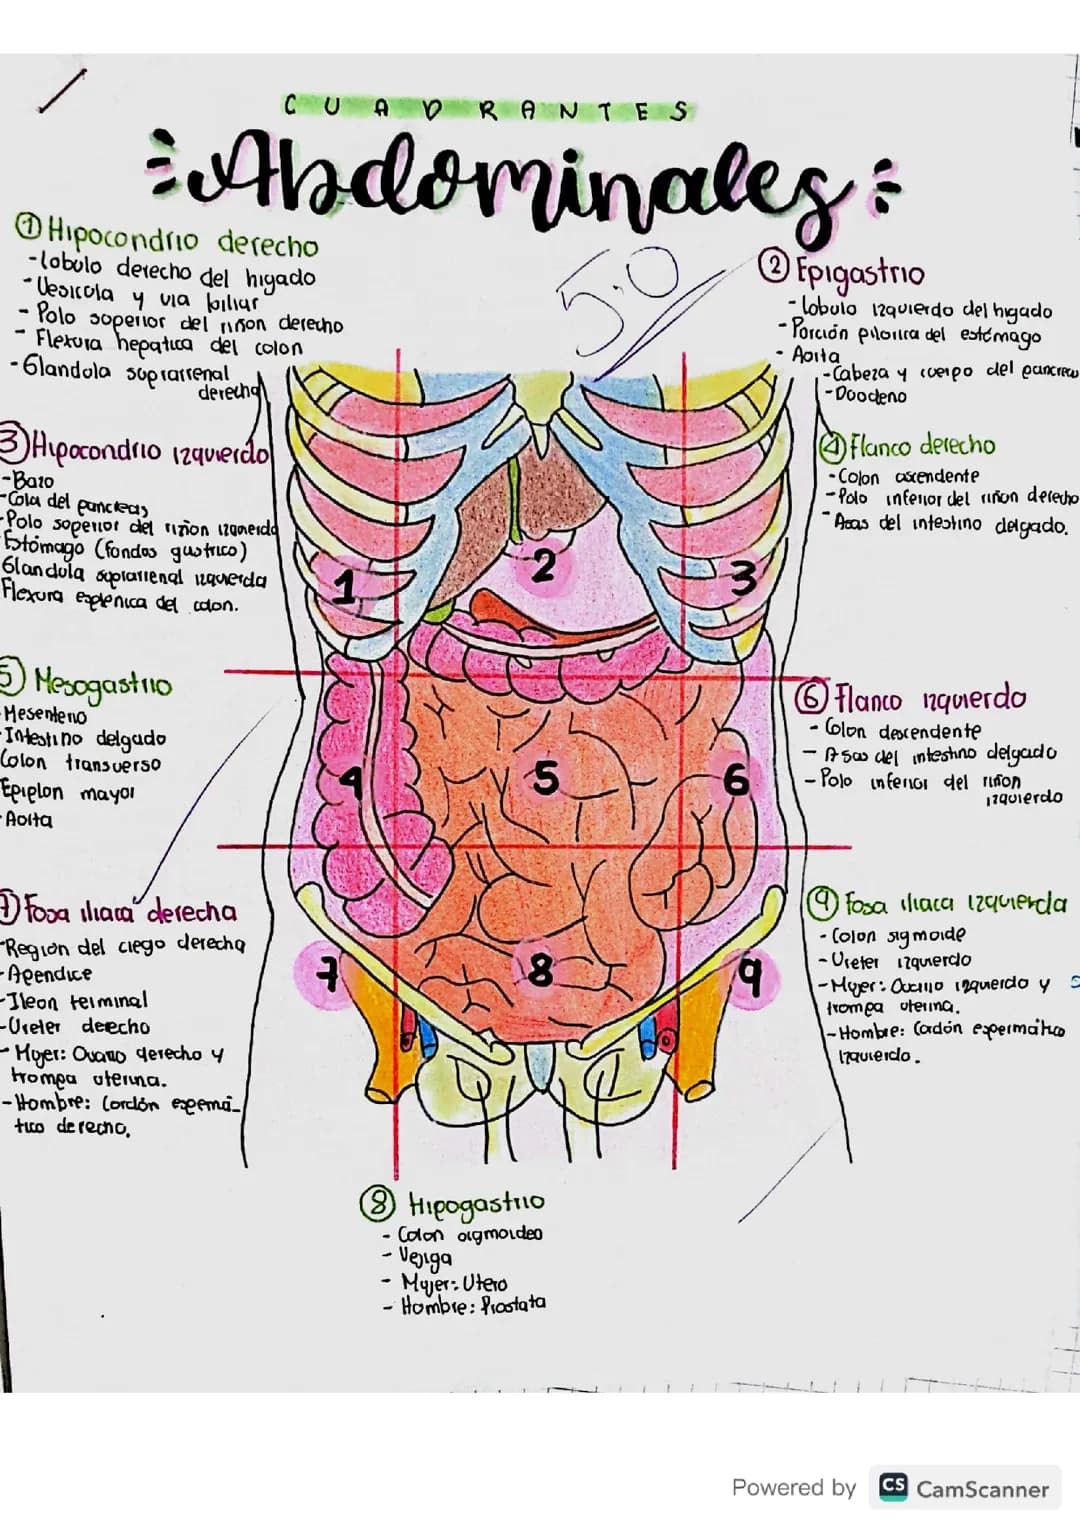 CUADRANTES
Abdominales
5.0
① Hipocondrio derecho
-lobulo derecho del higado
-Vesicola y via biliar
- Polo soperior del riñon derecho
- Flexura hepatica del colon
-Glandola soprarrenal
derecha
② Epigastrio
- lobulo izquierdo del higado
- Porción pilorica del estómago
- Aorta
-Cabeza y cuerpo del pancrea
-Doodeno
3 Hipocondrio izquierdo
-Bazo
-Cola del pancreas
-Polo soperior del riñon izquierdo
Estómago (fondos gustrico)
Glandula soprarrenal izquierda
Flexura esplenica del colon.
④ Flanco derecho
- Colon ascendente
- Polo inferior del riñon derecho
- Asas del intestino delgado.
5 Mesogastrio
Mesenterio
-Intestino delgado
Colon transverso
Epiplon mayor
-Aorta
⑥ Flanco izquierdo
- Colon descendente
- Asas del intestino delgado
- Polo inferior del riñon
izquierdo
7 Fosa iliaca derecha
-Region del ciego derecha
-Apendice
-Ileon terminal
-Ureter derecho
- Mujer: Ovario derecho y
trompa uterina.
-Hombre: Cordón espermá-
tico derecho.
⑨ Fosa iliaca izquierda
- Colon sigmoide
- Ureter izquierdo
-Mujer: Ovario izquierdo y
trompa uterina.
-Hombre: Cordón espermático
izquierdo.
1
2
3
4
5
6
7
8
9
⑧ Hipogastrio
- Colon sigmoideo
- Vejiga
- Mujer: Utero
- Hombre: Prostata
Powered by CS CamScanner